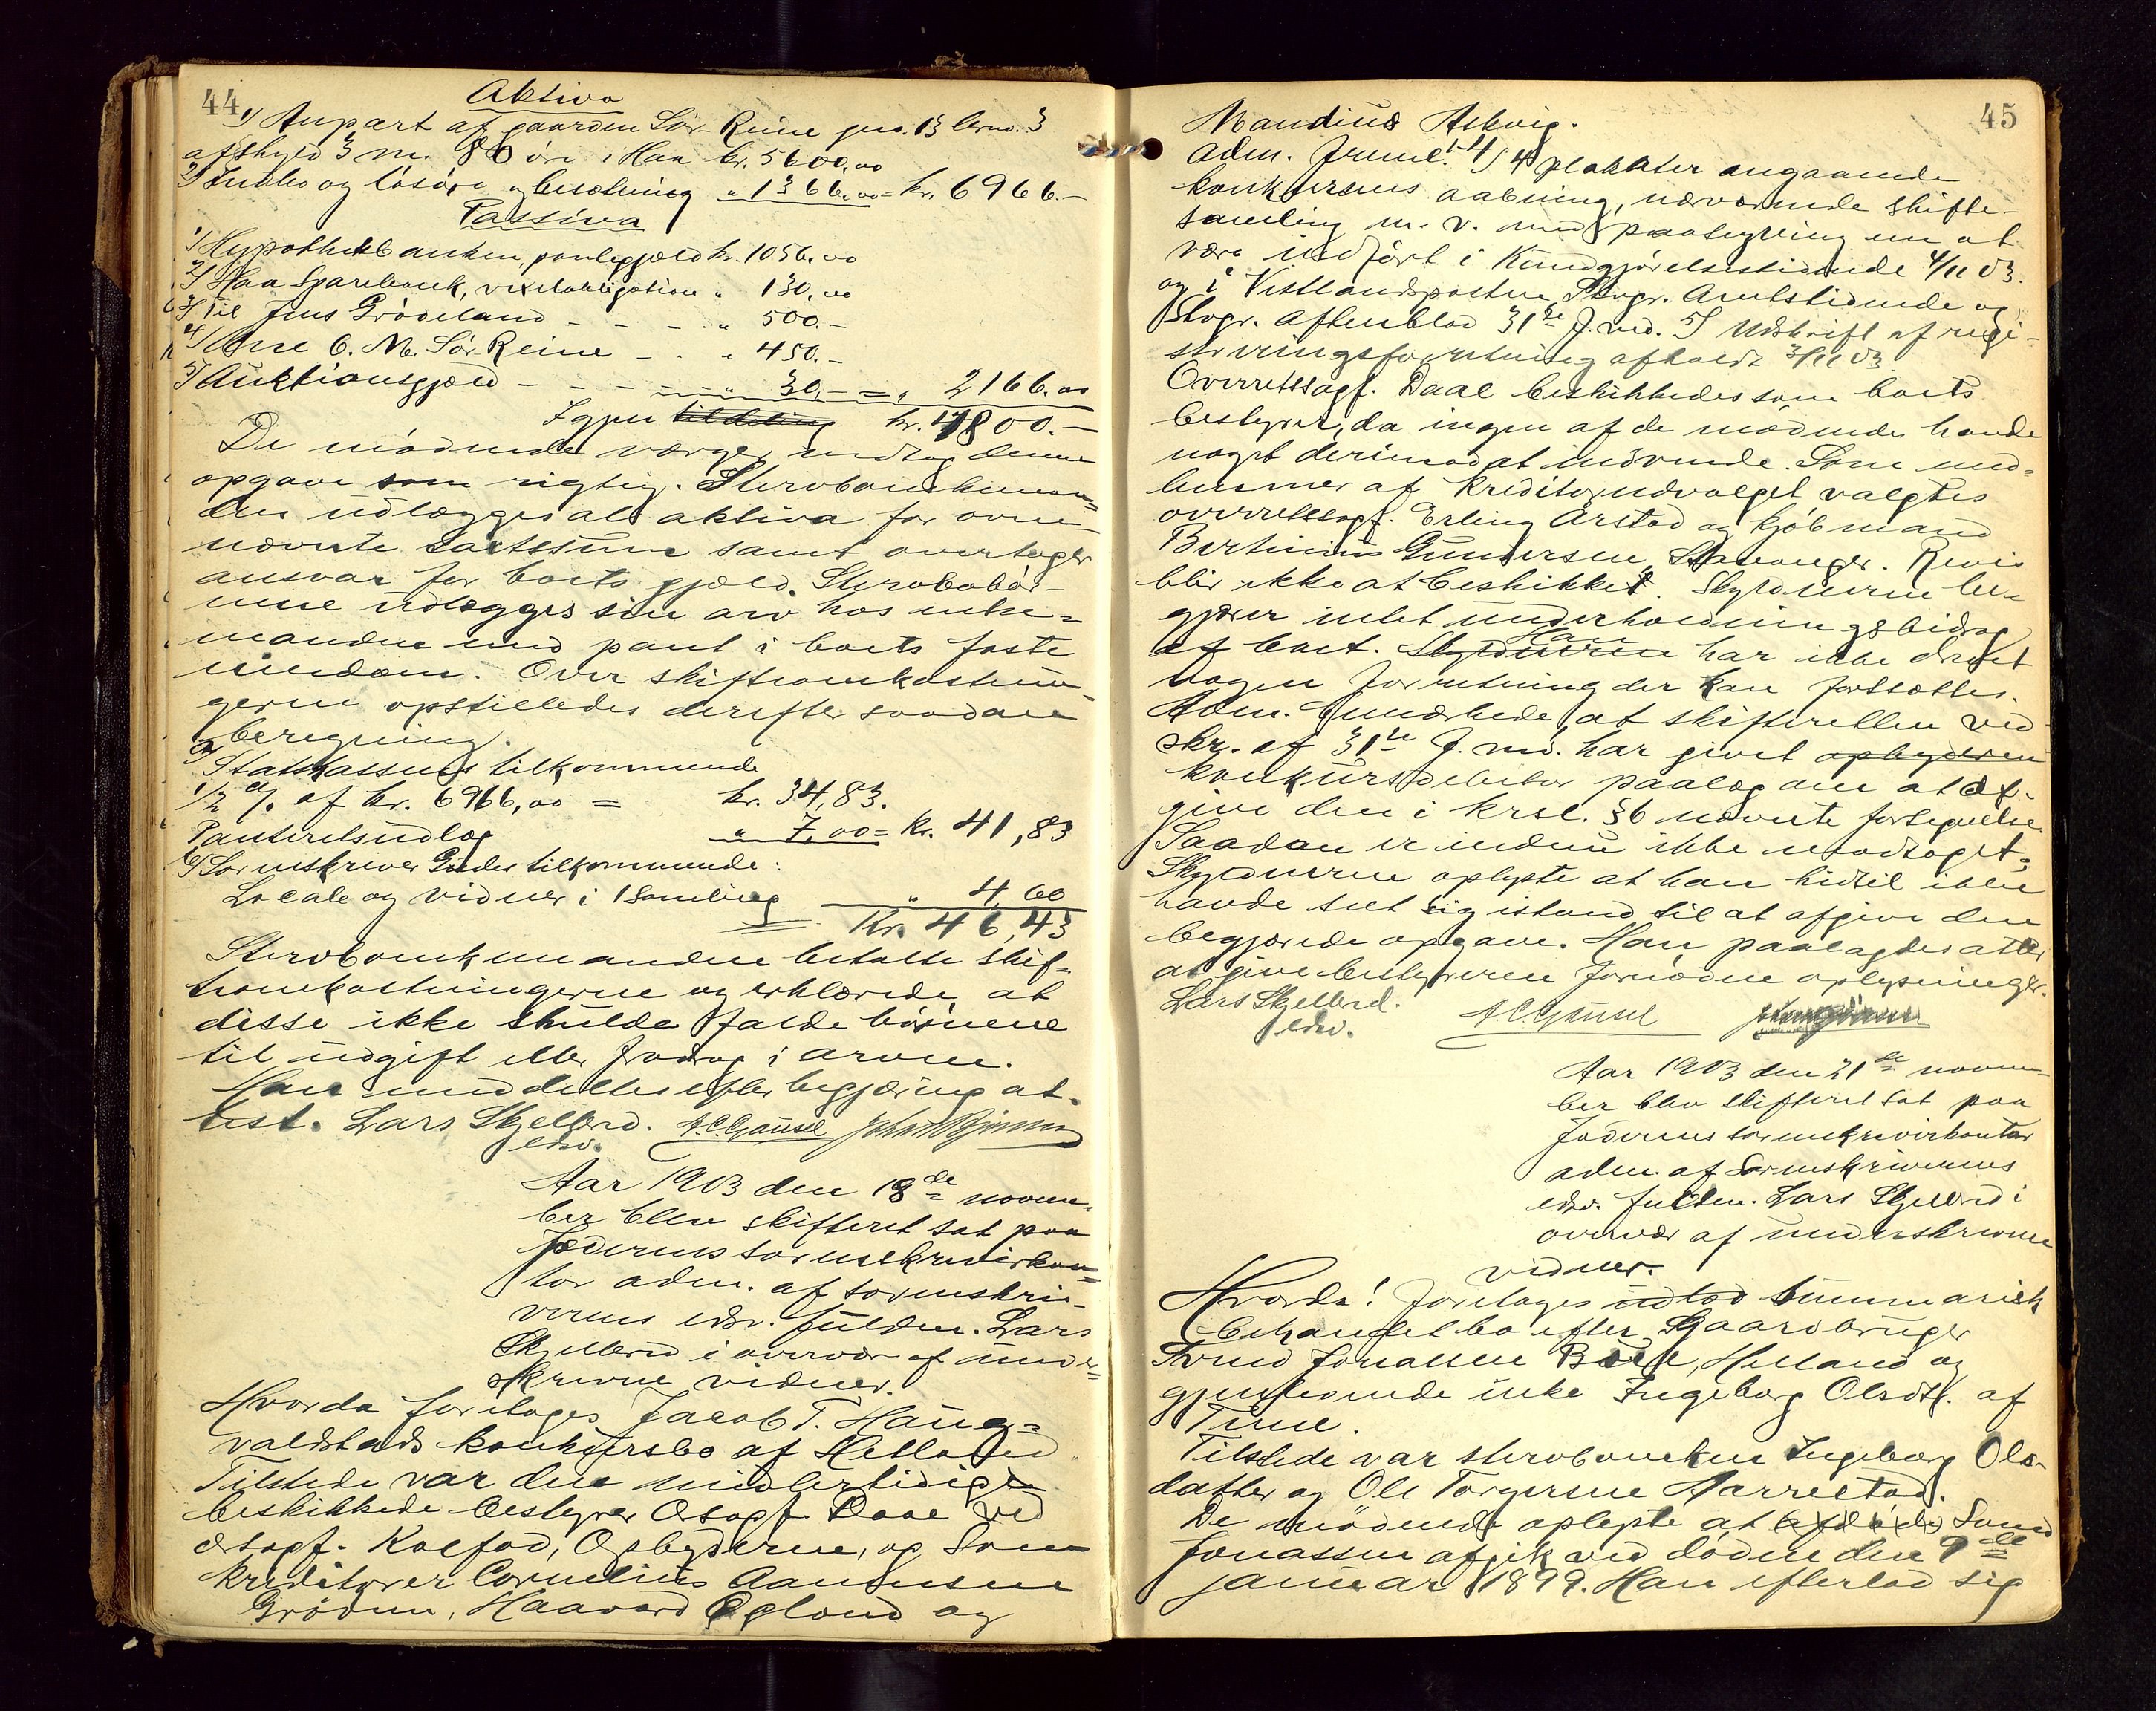 44
Aktiva
1) Anpart af gaarden Sør-Reine gno. 13 brno. 3
afskyld 3 m. 80 øre i Haa kr. 5600,00
2) Indbo og løsøre og besætning " 1366,00 = kr. 6966.-
Passiva
1) Hypothekbanken, pantegjæld kr. 1056.00
2) Haa Sparebank, vexelobligation " 130,00
3) Til Jens Grødeland - - - " 500.-
4) Ane C. M. Sør Reine - - " 450.-
5) Auktionsgjæld - - - " 30.- = " 2166.00
Igjen til deling kr. 4800.-
De mødende værger modtog denne
opgave som rigtig. Sterboenkeman-
den udlægges al aktiva for oven-
nævnte taxtsum samt overtager
ansvar for boets gjæld. Sterbobør-
nene udlægges sin arv hos enke-
manden med pant i boets faste
eiendom. Over skifteomkostnin-
gerne opstilledes derefter saadan
beregning.
a) Statskassens tilkommende
1/2 % af kr. 6966,00 = kr. 34,83.
Panteretsudlæg " 7,00 = kr. 41,83
b) Sorenskriver Gjedes tilkommende:
Locale og vidner i 1 samling " 4,60
Kr. 46,43
Sterboenkemanden betalte skif-
teomkostningerne og erklærede, at
disse ikke skulde falde børnene
til udgift eller fradrag i arven.
Han meddeltes efter begjæring at-
test. Lars Skjelbred. A. C. Gausel
edsv.
Aar 1903 den 18de novem-
ber blev skifteret sat paa
Jæderens sorenskriverkon-
tor adm. af sorenskri-
verens edsv. fuldm. Lars
Skjelbred i overvær af under-
skrevne vidner.
Hvorda foretoges Jacob T. Haug-
valdstads konkursbo af Hetland
Tilstede var den midlertidigt
beskikkede bestyrer Osagf. Daae ved
osagf. Koefod, Opbyderen, og Som
kreditorer Cornelius Aanensen
Grødem, Haavard Egland og
45
Mandius Askvig.
Adm. freml. 1-4) 4 plakater angaaende
konkursens aabning, nærværende skifte-
samling m. v. med paategning om at
være indført i Kundgjørelsestidende 4/11 03.
og i Vestlandsposten, Stvgr. Amtstidende og
Stvgr. Aftenblad 31te f. md. 5) Udskrift af regi-
streringsforretning afholdt 3/11 03.
Overretssagf. Daae beskikkedes som boets
bestyrer, da ingen af de mødende havde
noget derimod at indvende. Som med-
lemmer af Kreditorudvalget valgtes
overretssagf. Erling Årstad og kjøbmand
Bertinius Gundersen, Stavanger. Revis
blir ikke at beskikket. Skyldneren be-
gjærer intet underholdningsbidrag
af boet. Skyldneren Han har ikke drevet
nogen forretning der kan fortsættes.
Adm. bemærkede, at skifteretten ved
skr. af 31te f. md. har givet opbyderen
konkursdebitor paalæg om at af-
give den i krsl. §6 nævnte fortegnelse.
Saadan er endnu ikke modtaget.
Skyldneren oplyste at han hidtil ikke
havde seet sig istand til at afgive den
begjærede opgave. Han paalagdes atter
at give bestyreren fornødne oplysninger.
Lars Skjelbred. A. C. Gausel
edsv.
Aar 1903 den 21de novem-
ber blev skifteret sat paa
Jæderens sorenskriverkontor
adm. af Sorenskriverens
edsv. fuldm. Lars Skjelbred i
overvær af underskrevne
vidner.
Hvorda! foretoges udlod summarisk
behandlet bo efter Gaardbruger
Svend Jonassen Boee, Hetland og
gjenlevende enke Ingeborg Olsdtr. af
Time.
Tilstede var sterboenken Ingeborg Ols-
datter og Ole Torgersen Aarrestad.
De mødende oplyste at afdøde Svend
Jonassen afgik ved døden den 9de
januar 1899. Han efterlod sig